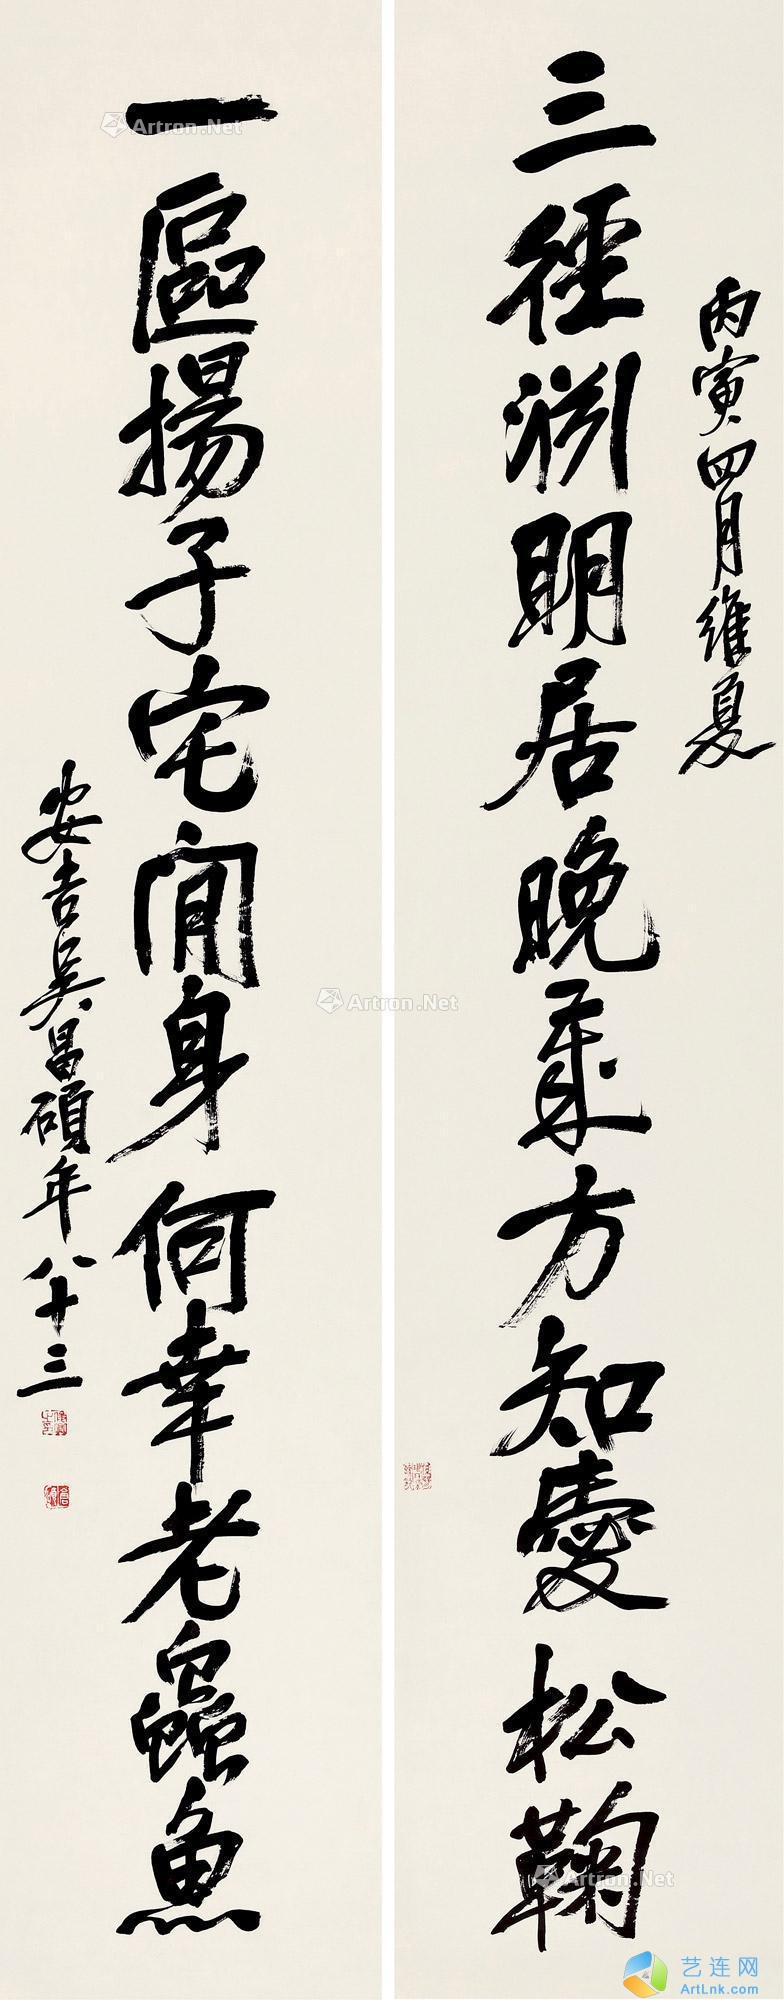 丙寅四月維夏
三徑渊明居晚歲方知愛松鞠
一區揚子宅閒身何幸老蟲魚
安吉吳昌碩年八十三
Artron.Net
Artron.Net
Artron.Net
Artron.Net
艺连网
ArtLnk.com